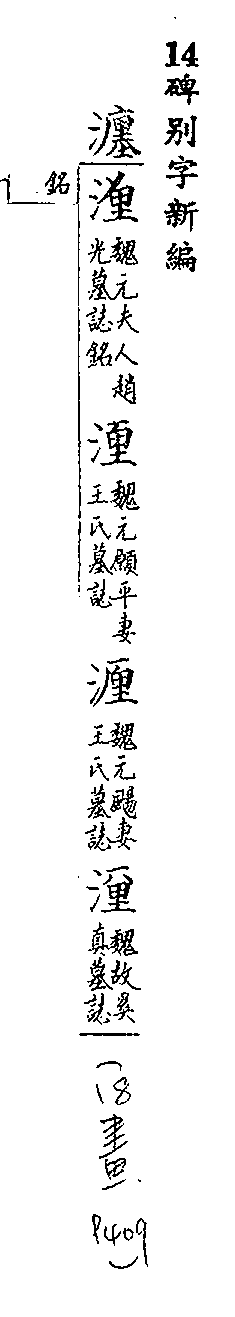 14碑別字新編
瀍
魏元夫人趙
光墓誌銘
魏元願平妻
王氏墓誌
魏元颺妻
王氏墓誌
魏故吳
真墓誌
(18畫 P409)
銘